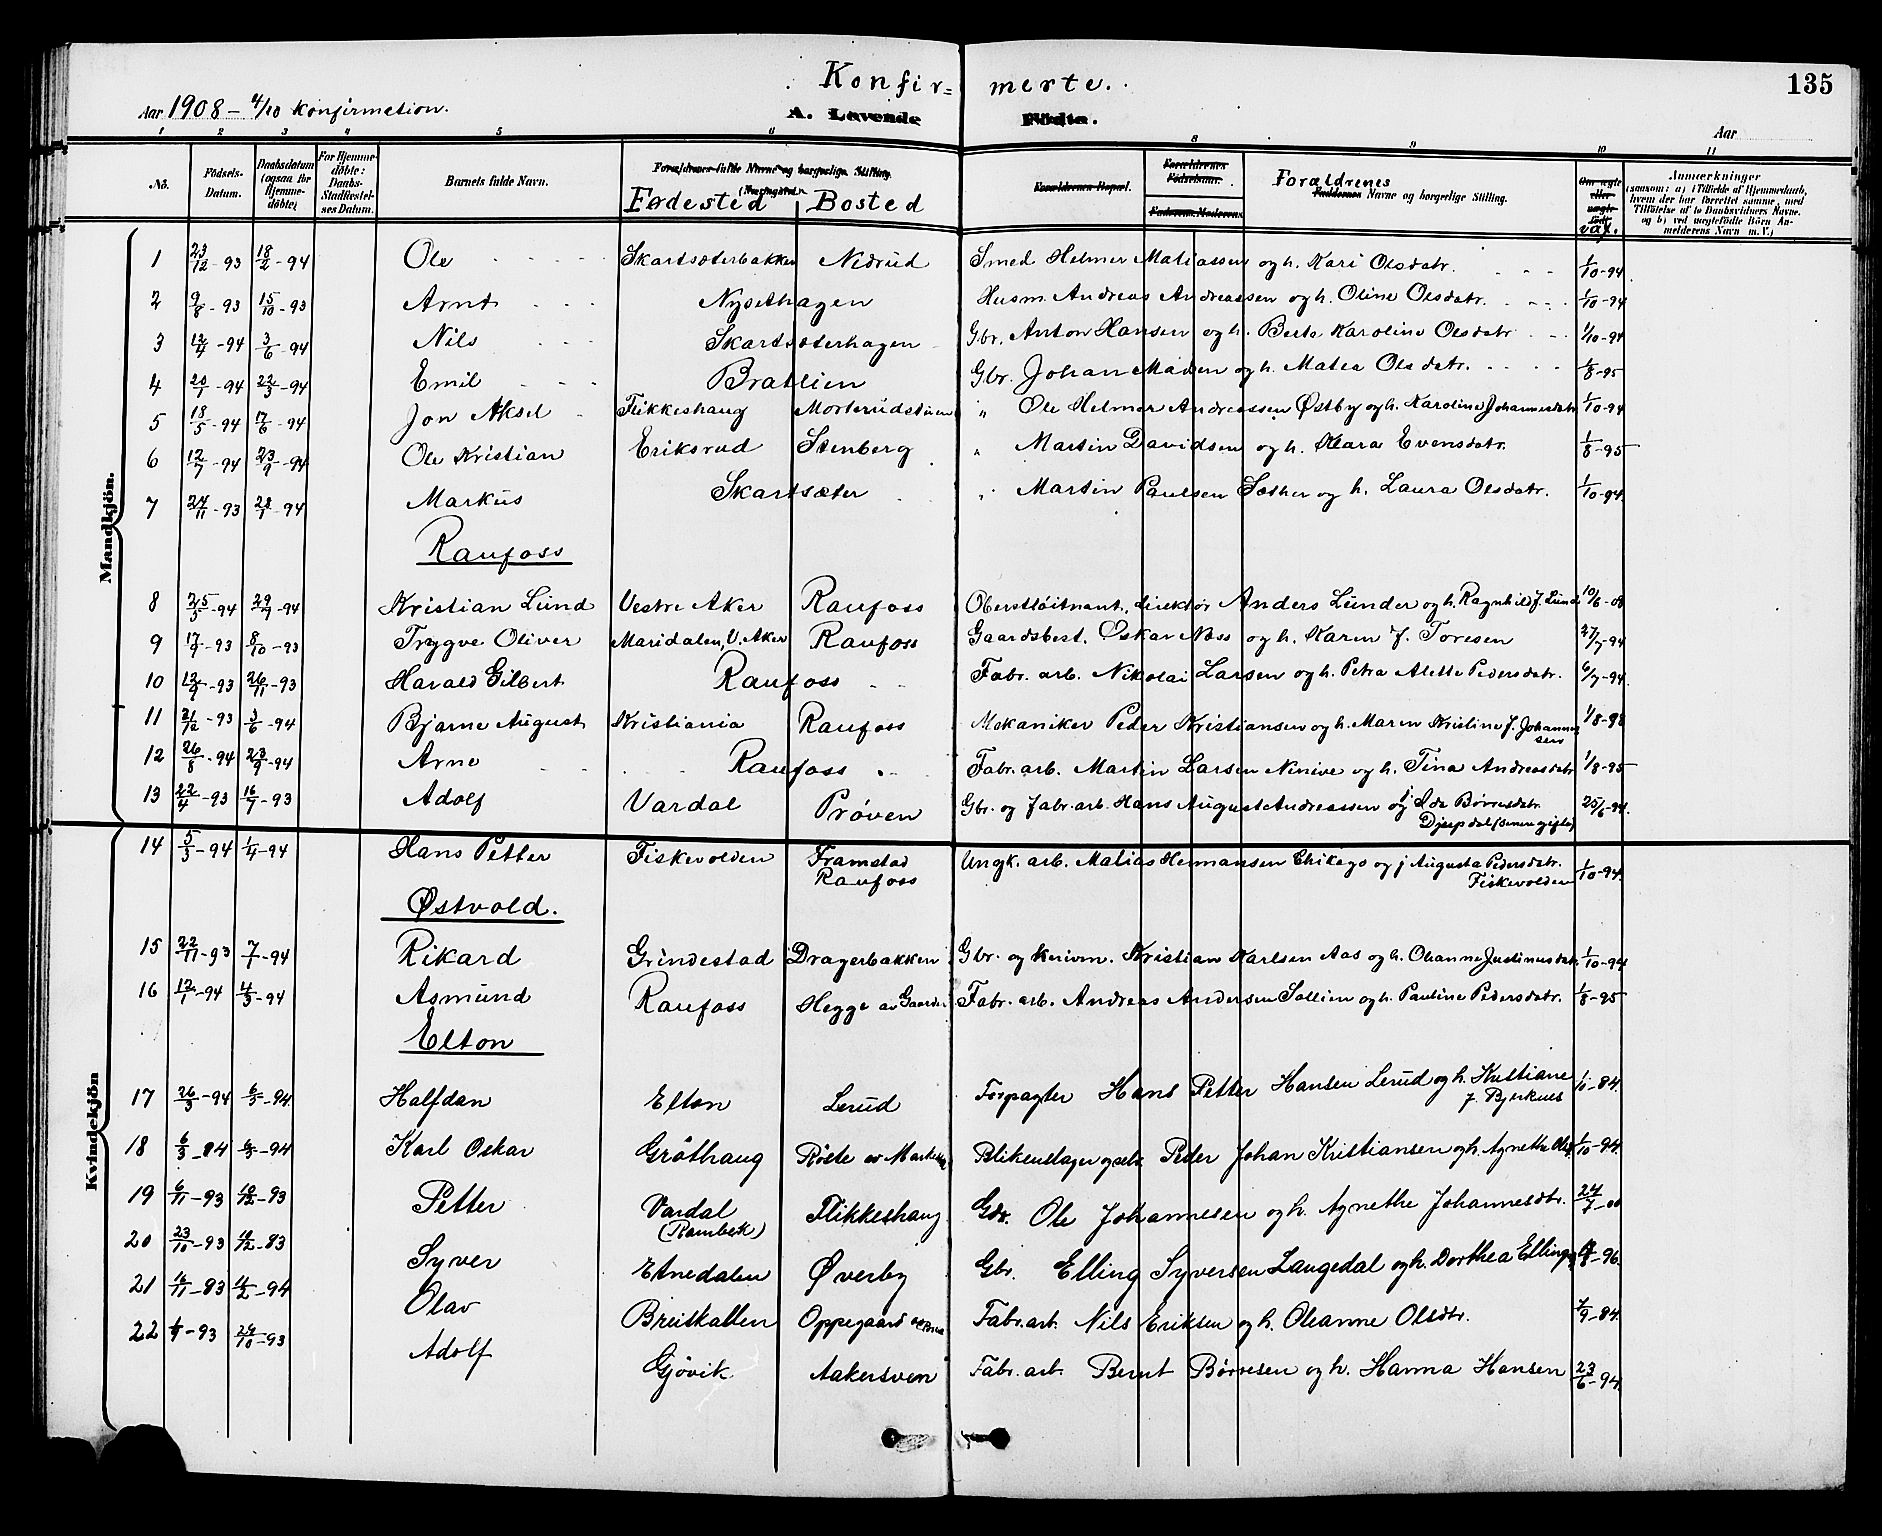 Konfir= merte.
135
Aar 1908 - 4/10 Konfirmation.
A. Levende Fødte.
Aar
1 2 3 4 5 6 8 9 10 11
No.
Födsels-Datum.
Daabsdatum (ogsaa for Hjemme-döbte)
For Hjemme-döbte: Daabs-Stadfæstel-ses Datum.
Barnets fulde Navn.
Forældrenes fulde Navne og borgerlige Stilling.
Fødested Bosted
Forældrenes Bopæl.
Forældrenes Födselsaar.
Faderens. Moderens.
Forældrenes
Faddernes Navne og borgerlige Stilling.
Om ægte eller uægte født.
vax.
Anmærkninger
(saasom: a) i Tilfælde af Hjemmedaab, hvem der har forrettet samme, med Tilföielse af to Daabsvidners Navne, og b) ved uægtefödte Börn An-melderens Navn m. V.)
Mandkjön.
1 23/12-93 18/2-94 Ole Skartsæterbakken Nedrud Smed Helmer Matiassen og h. Kari Olsdatr. 1/10-94
2 9/8-93 15/10-93 Arnt Nysethagen Husm. Andreas Andreassen og h. Oline Olsdatr. 1/10-94
3 12/4-94 3/6-94 Nils Skartsæterhagen Gbr. Anton Hansen og h. Berte Karoline Olsdatr 1/10-94
4 20/1-94 22/3-94 Emil Bratlien Gbr. Johan Madsen og h. Matea Olsdatr. 1/8-95
5 18/5-94 17/6-94 Jon Aksel Flikkeshaug Morterudstuen " Ole Helmer Andreassen Østby og h. Karoline Johannesdatr 1/10-94
6 12/7-94 23/9-94 Ole Kristian Eriksrud Stenberg " Martin Davidsen og h. Klara Evensdatr. 1/8-95
7 24/11-93 28/1-94 Markus Skartsæter " Martin Paulsen Sæther og h. Laura Olsdatr. 1/10-94
Raufoss
8 25/5-94 29/7-94 Kristian Lund Vestre Aker Raufoss Oberstløitnant, direktør Anders Lunder og h. Ragnhild f. Lund 10/6-08
9 17/9-93 8/10-93 Trygve Oliver Maridalen, V. Aker Raufoss Gaardsbest. Oskar Næss og h. Karen f. Toresen 27/7-94
10 12/9-93 26/11-93 Harald Gilbert Raufoss Fabr. arb. Nikolai Larsen og h. Petra Alette Pedersdatr. 6/7-94
11 21/12-93 3/6-94 Bjarne August Kristiania Raufoss Mekaniker Peder Kristiansen og h. Maren Kristine f. Johannessen 1/8-98
12 26/8-94 23/9-94 Arne Raufoss Fabr. arb. Martin Larsen Ninive og h. Tina Andreasdatr 1/8-95
13 22/4-93 16/7-93 Adolf Vardal Prøven Gbr. og fabr. arb. Hans August Andreassen og j Ida Børresdatr. Djupdal (senere gifte) 25/6-94
Kvindekjön
14 5/3-94 1/4-94 Hans Petter Fiskevolden Framstad Raufoss Ungk. arb. Matias Hermansen Chikago og j Augusta Pedersdatr. Fiskevolden 1/10-94.
Østvold.
15 22/11-93 7/1-94 Rikard Grindestad Dragerbakken Gbr. og Kerivm. Kristian Karlsen Aas og h. Ohanne Justinusdatr. 1/10-94
16 12/1-94 4/3-94 Asmund Raufoss Hegge av Gaarder Fabr. arb. Andreas Andersen Sollien og h. Pauline Pedersdatr. 1/8-95
Elton
17 26/3-94 6/5-94 Halfdan Elton Lerud Forpagter Hans Petter Hansen Lerud og h. Kristiane f. Bjerknes -84
18 6/3-94 -94 Karl Oskar Grøthaug Røste av Blikenslager Peder Johan Kristiansen og h. Agnethe 1/10-94
19 6/11-93 10/12-93 Petter Vardal (Rambek) Flikkeshaug Gbr. Ole Johannesen og h. Agnethe Johannesdtr. 24/7-00
20 23/10-93 10/12-93 Syver Etnedalen Øverby Gbr. Elling Syversen Langedal og h. Dorthea Ellings -96
21 -93 4/2-94 Olav Breiskallen Oppegaard Fabr. arb. Nils Eriksen og h. Oleanne Olsdtr. 7/9-94.
22 -93 29/10-93 Adolf Gjøvik Aakersven Fabr. arb. Bernt Børresen og h. Hanna Hansen 23/6-94.